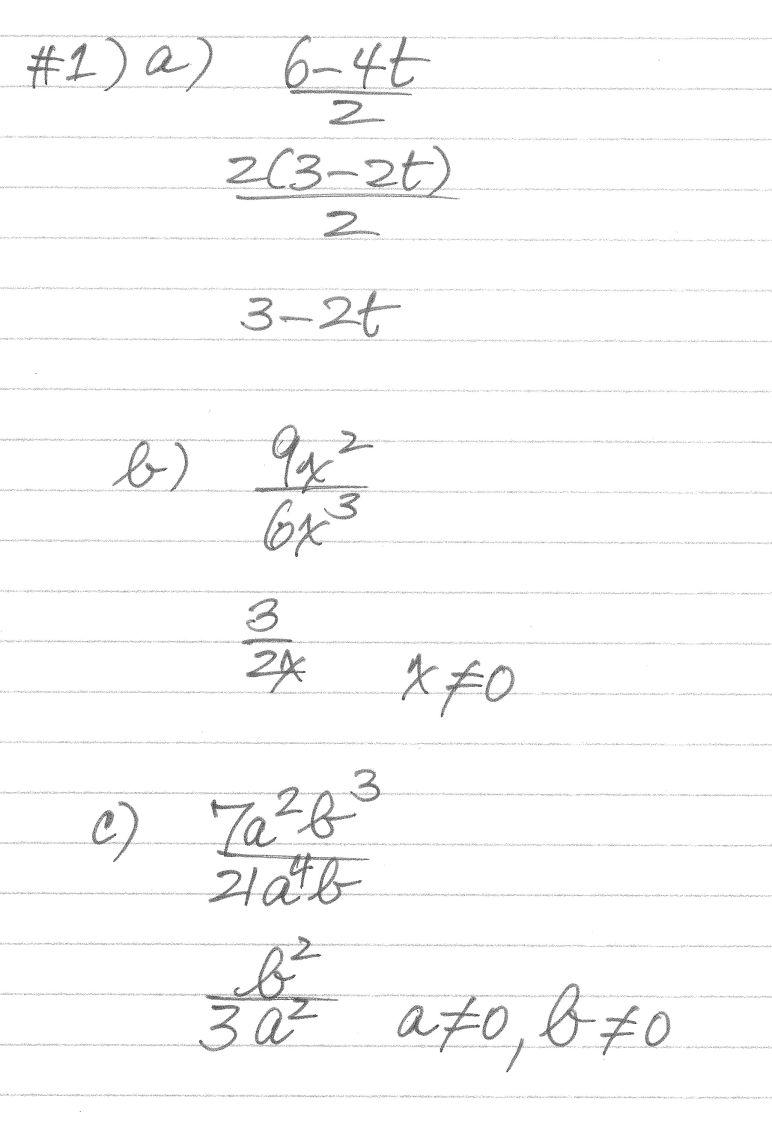 #1) a) (6-4t)/2
2(3-2t)/2
3-2t
b) 9x²/6x³
3/2x   x≠0
c) 7a²b³/21a⁴b
b²/3a²   a≠0, b≠0